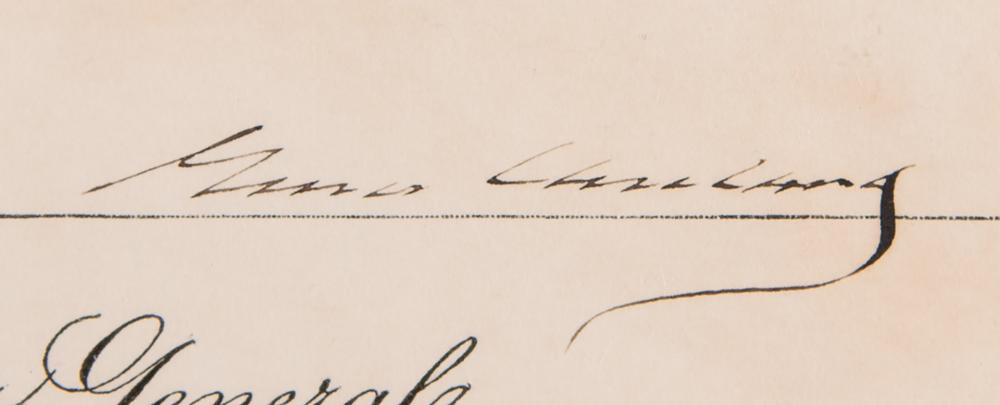 Grover Cleveland
General